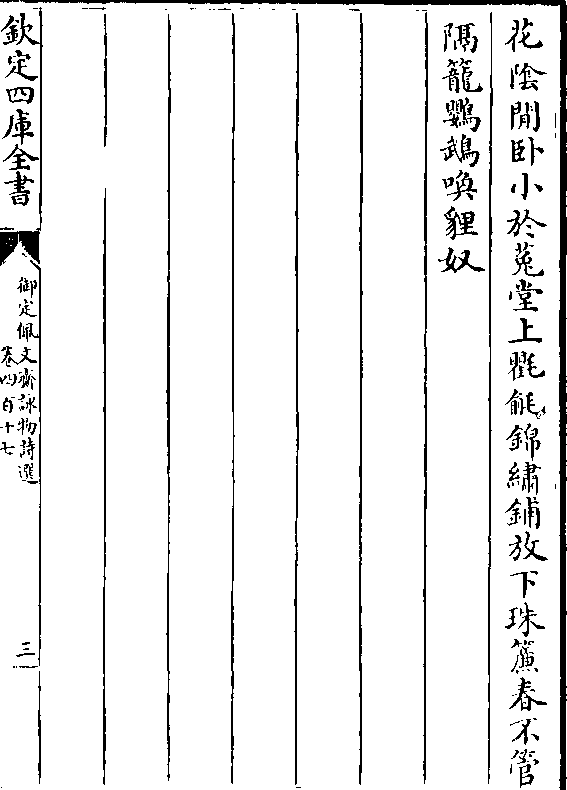 花陰閒卧小於菟堂上氍毹錦繡鋪放下珠簾春不管
隔籠鸚鵡喚貍奴
欽定四庫全書
御定佩文齋詠物詩選
卷四百十七
三